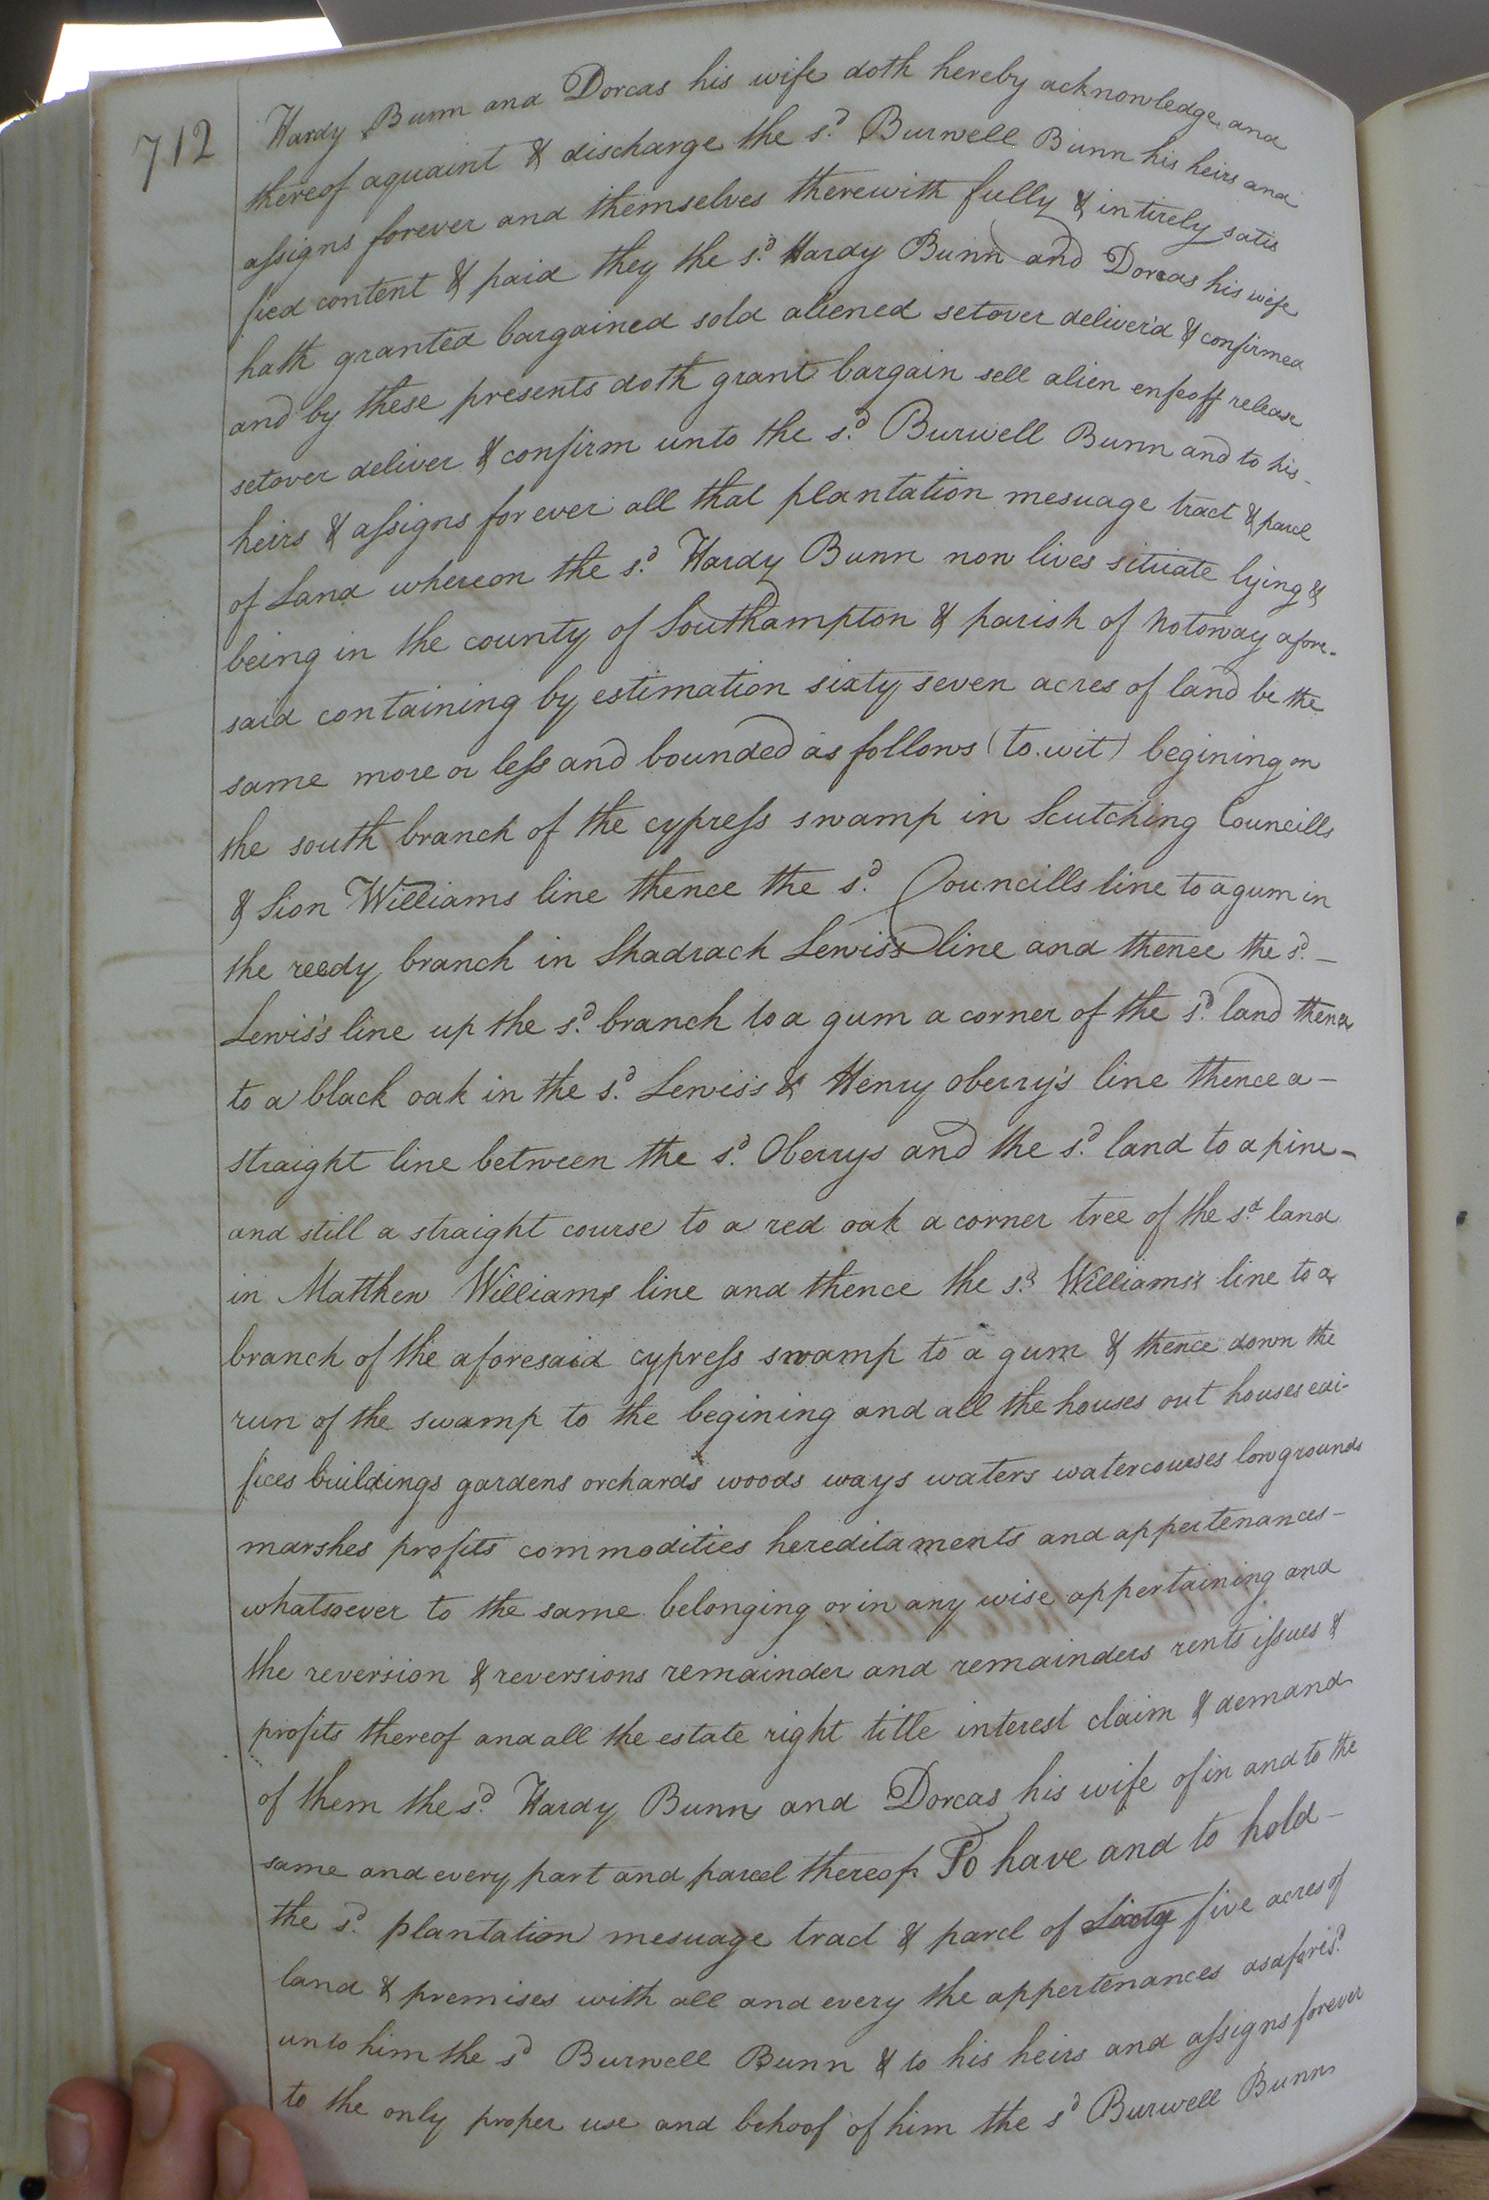 712
Hardy Bunn and Dorcas his wife doth hereby acknowledge and
thereof aquaint & discharge the sd. Burwell Bunn his heirs and
assigns forever and themselves therewith fully & intirely satis
fied content & paid they the sd. Hardy Bunn and Dorcas his wife
hath granted bargained sold aliened setover deliver'd & confirmed
and by these presents doth grant bargain sell alien enfeoff release
setover deliver & confirm unto the sd. Burwell Bunn and to his
heirs & assigns forever all that plantation mesuage tract & parcel
of Land whereon the sd. Hardy Bunn now lives situate lying &
being in the county of Southampton & parish of Notoway afore-
said containing by estimation sixty seven acres of land be the
same more or less and bounded as follows (to wit) begining on
the south branch of the cypress swamp in Scutching Councills
& Sion Williams line thence the sd. Councills line to a gum in
the reedy branch in Shadrack Lewis's line and thence the sd. -
Lewis's line up the sd. branch to a gum a corner of the sd. land thence
to a black oak in the sd. Lewis's & Henry Oberry's line thence a -
straight line between the sd. Oberrys and the sd. land to a pine -
and still a straight course to a red oak a corner tree of the sd. land
in Matthew Williams line and thence the sd. Williams's line to a
branch of the aforesaid cypress swamp to a gum & thence down the
run of the swamp to the begining and all the houses out houses edi-
fices buildings gardens orchards woods ways waters watercourses low grounds
marshes profits commodities hereditaments and appertenances -
whatsoever to the same belonging or in any wise appertaining and
the reversion & reversions remainder and remainders rents issues &
profits thereof and all the estate right title interest claim & demand
of them the sd. Hardy Bunn and Dorcas his wife of in and to the
same and every part and parcel thereof To have and to hold -
the sd. plantation mesuage tract & parcl of Sixty five acres of
land & premises with all and every the appertenances as aforesd.
unto him the sd Burwell Bunn & to his heirs and assigns forever
to the only proper use and behoof of him the sd Burwell Bunn